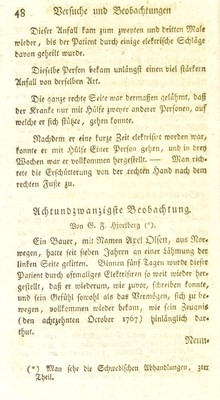 48 Versuche und Beobachtungen
Dieser Anfall kam zum zweyten und dritten Male
wieder, bis der Patient durch einige elektrische Schläge
davon geheilt wurde.
Dieselbe Person bekam unlängst einen viel stärkern
Anfall von derselben Art.
Die ganze rechte Seite war dermaßen gelähmt, daß
der Kranke nur mit Hülfe zweyer anderer Personen, auf
welche er sich stützte, gehen konnte.
Nachdem er eine kurze Zeit elektrisirt worden war,
konnte er mit Hülfe Einer Person gehen, und in drey
Wochen war er vollkommen hergestellt. — Man rich-
tete die Erschütterung von der rechten Hand nach dem
rechten Fuße zu.
Achtundzwanzigste Beobachtung.
Von G. F. Hjortberg (*).
Ein Bauer, mit Namen Axel Olsen, aus Nor-
wegen, hatte seit sieben Jahren an einer Lähmung der
linken Seite gelitten. Binnen fünf Tagen wurde dieser
Patient durch oftmaliges Elektrisiren so weit wieder her-
gestellt, daß er wiederum, wie zuvor, schreiben konnte,
und sein Gefühl sowohl als das Vermögen, sich zu be-
wegen, vollkommen wieder bekam, wie sein Zeugniß
(den achtzehnten October 1767) hinlänglich dar-
thut.
Neun-
(*) Man sehe die Schwedischen Abhandlungen, 27ter
Theil.